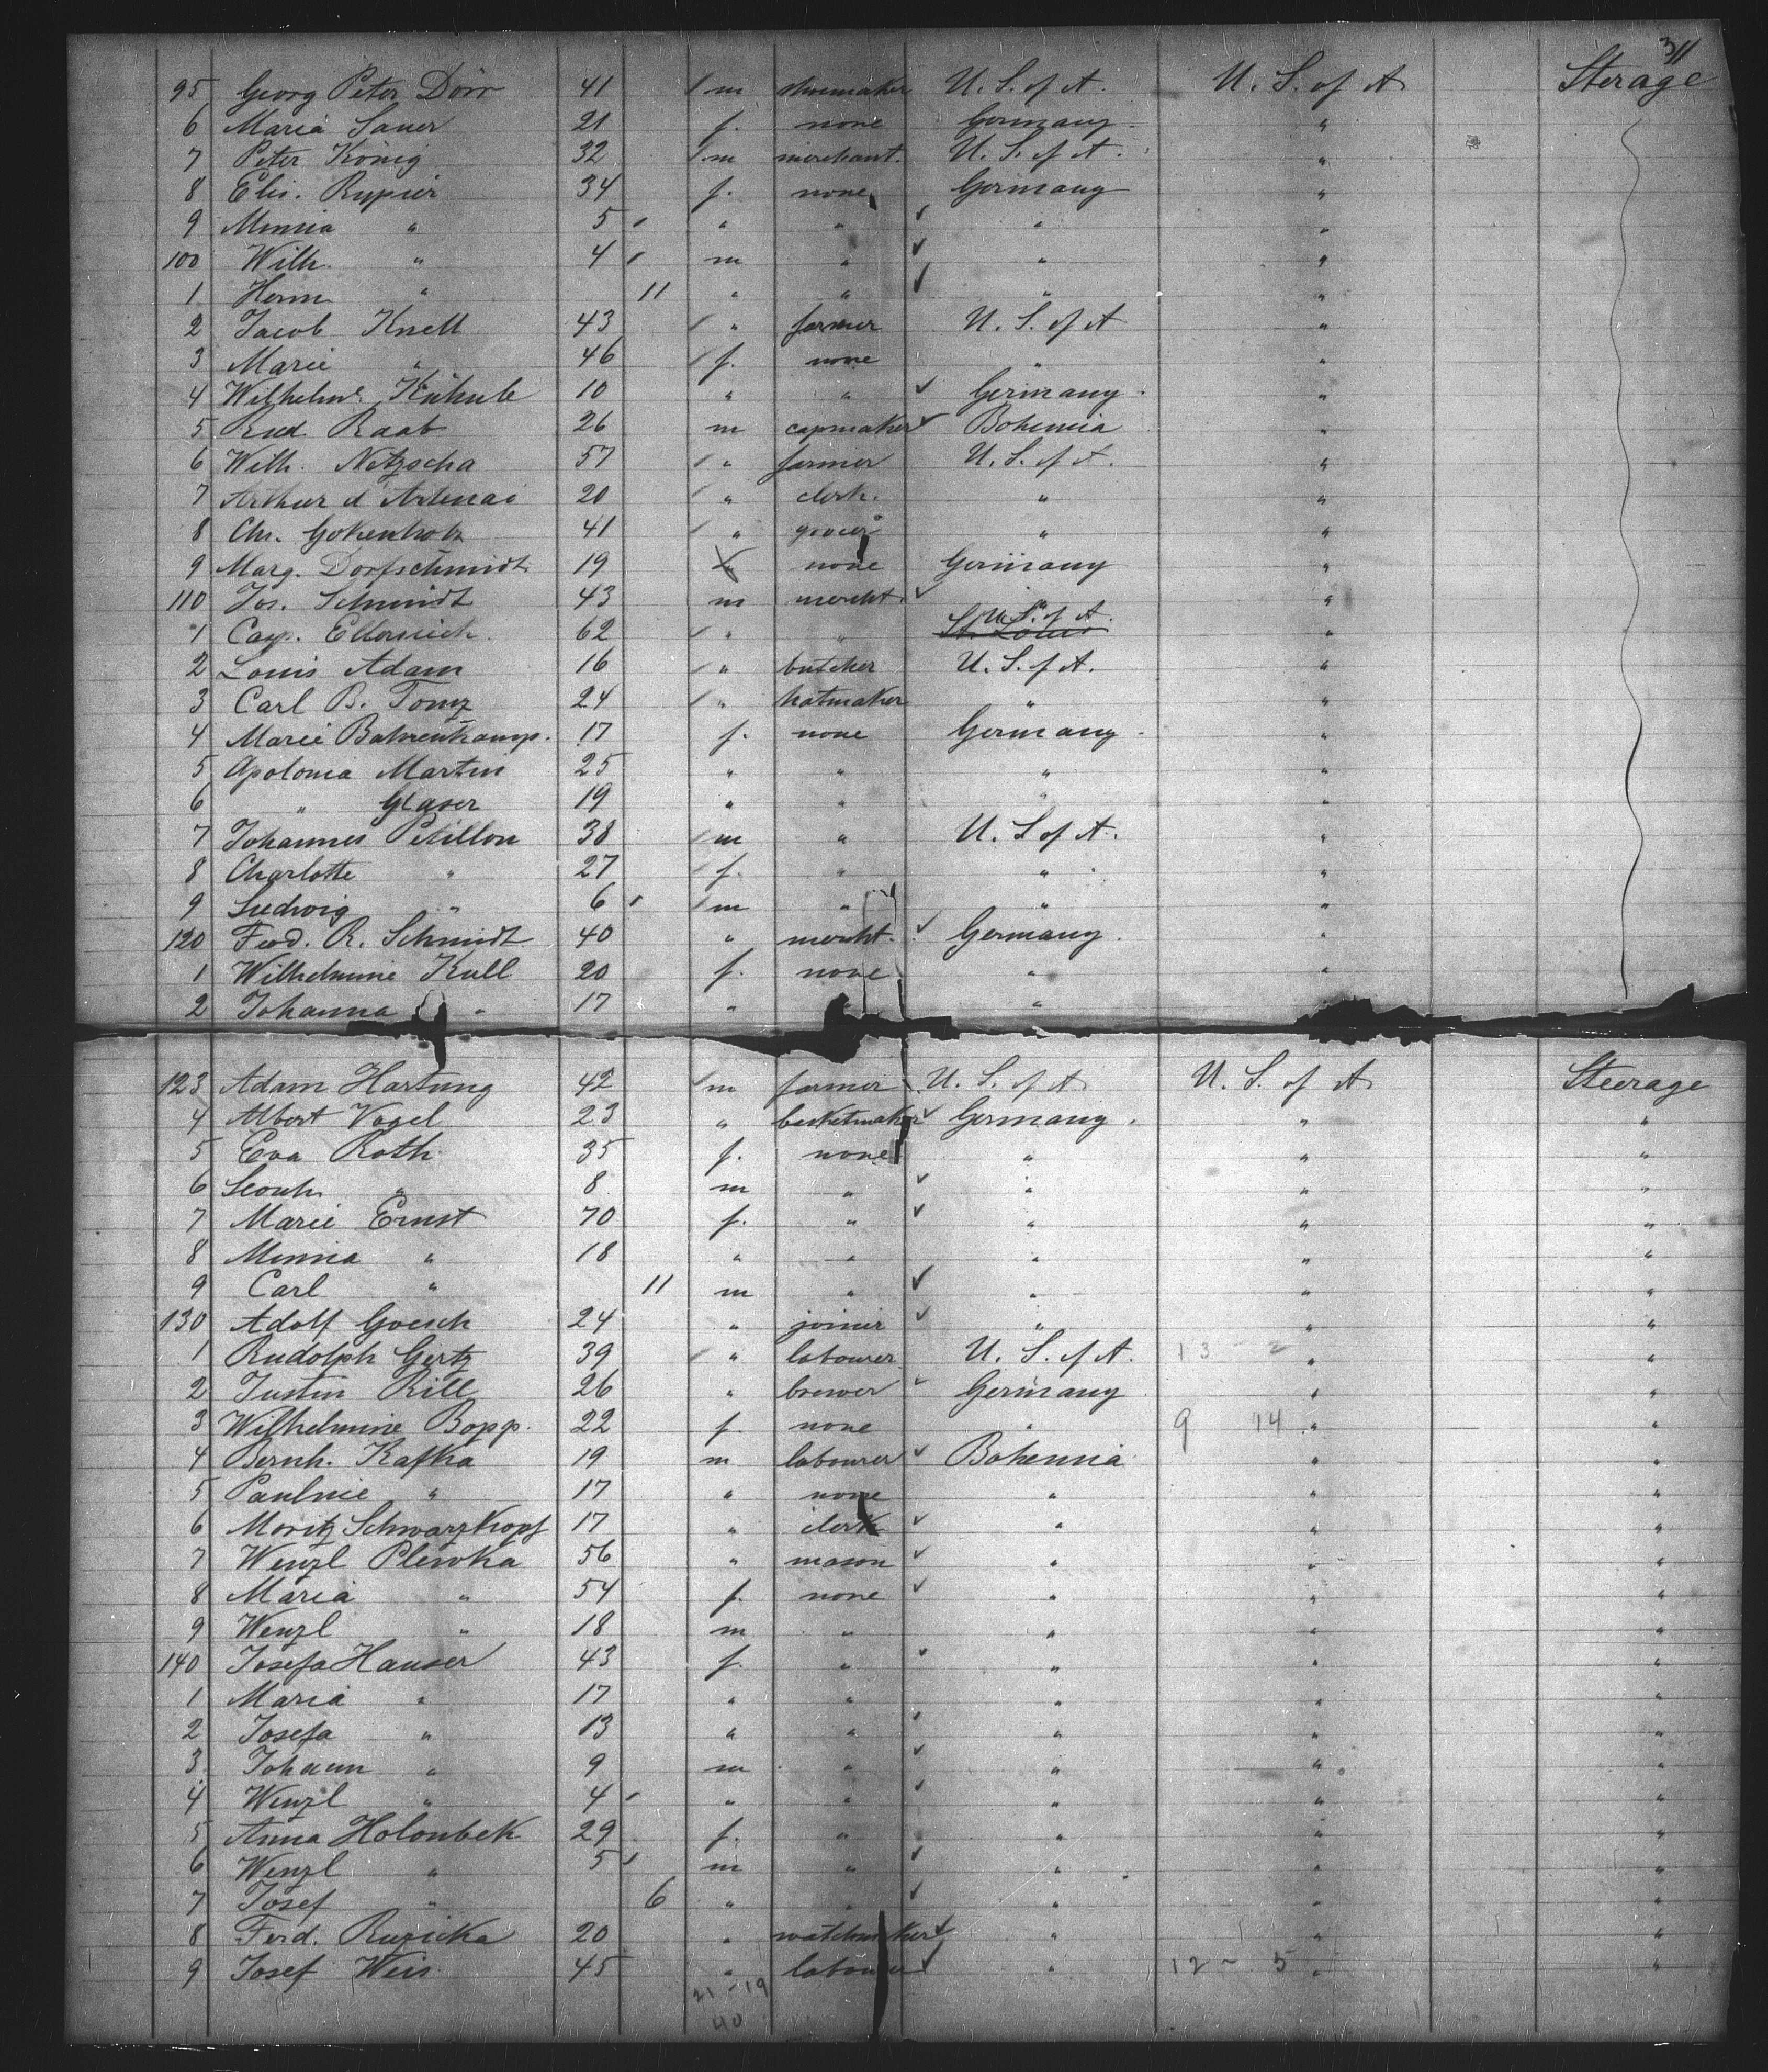 311
95 Georg Peter Dörr 41 m shoemaker U. S. of A. U. S. of A Sterage
6 Maria Sauer 21 f. none Germany. "
7 Peter König 32 m merchant. U. S. of A. "
8 Elis. Rupier 34 f. none Germany "
9 Minna " 5 " " " "
100 Wilh. " 4 m " " "
1 Herm " 11 " " " "
2 Jacob Knell 43 " farmer U. S. of A "
3 Marie " 46 f. none " "
4 Wilhelm. 10 " " Germany. "
5 Rud. Raab 26 m capmaker Bohemia "
6 Wilh. Netzscha 57 " farmer U. S. of A. "
7 Arthur d'Artenai 20 " clerk. " "
8 Chr. Gokenholz 41 " grocer " "
9 Marg. Dorfschmidt 19 none Germany "
110 Jos. Schmidt 43 m mercht. " "
1 Casp. 62 " " St. Louis U. S. of A. "
2 Louis Adam 16 " butcher U. S. of A. "
3 Carl B. 24 " hatmaker " "
4 Marie Bahrenkamp. 17 f. none Germany. "
5 Apolonia Martin 25 " " " "
6 " Glaser 19 " " " "
7 Johannes Petillon 38 m " U. S. of A. "
8 Charlotte " 27 f. " " "
9 Ludwig " 6 m " " "
120 Ferd. R. Schmidt 40 " mercht. Germany. "
1 Wilhelmine Kull 20 f. none " "
2 Johanna " 17 " " "
123 Adam Hartung 42 m farmer U. S. of A U. S. of A Steerage
4 Albert Vogel 23 " basketmaker Germany. " "
5 Eva Roth 35 f. none " " "
6 " 8 m " " " "
7 Marie Ernst 70 f. " " " "
8 Minna " 18 " " " " "
9 Carl " 11 m " " " "
130 Adolf Goesch 24 " joiner " " "
1 Rudolph Gertz 39 " labourer U. S. of A. 13 2 " "
2 Justin Rill 26 " brewer Germany " "
3 Wilhelmine Bopp. 22 f. none " 9 14 " "
4 Bernh. Kafka 19 m labourer Bohemia " "
5 Pauline " 17 " none " " "
6 Moritz Schwarzkopf 17 " clerk " " "
7 Wenzl Plewka 56 " mason " " "
8 Maria " 54 f. none " " "
9 Wenzl " 18 m " " " "
140 Josefa Hauser 43 f. " " " "
1 Maria " 17 " " " " "
2 Josefa " 13 " " " " "
3 Johann " 9 m " " " "
4 Wenzl " 4 " " " " "
5 Anna Holoubek 29 f. " " " "
6 Wenzl " 5 m " " " "
7 Josef " 6 " " " " "
8 Ferd. Ruzicka 20 " watchmaker " " "
9 Josef Weis. 45 " labourer " 12 - 5 " "
21 - 19
40